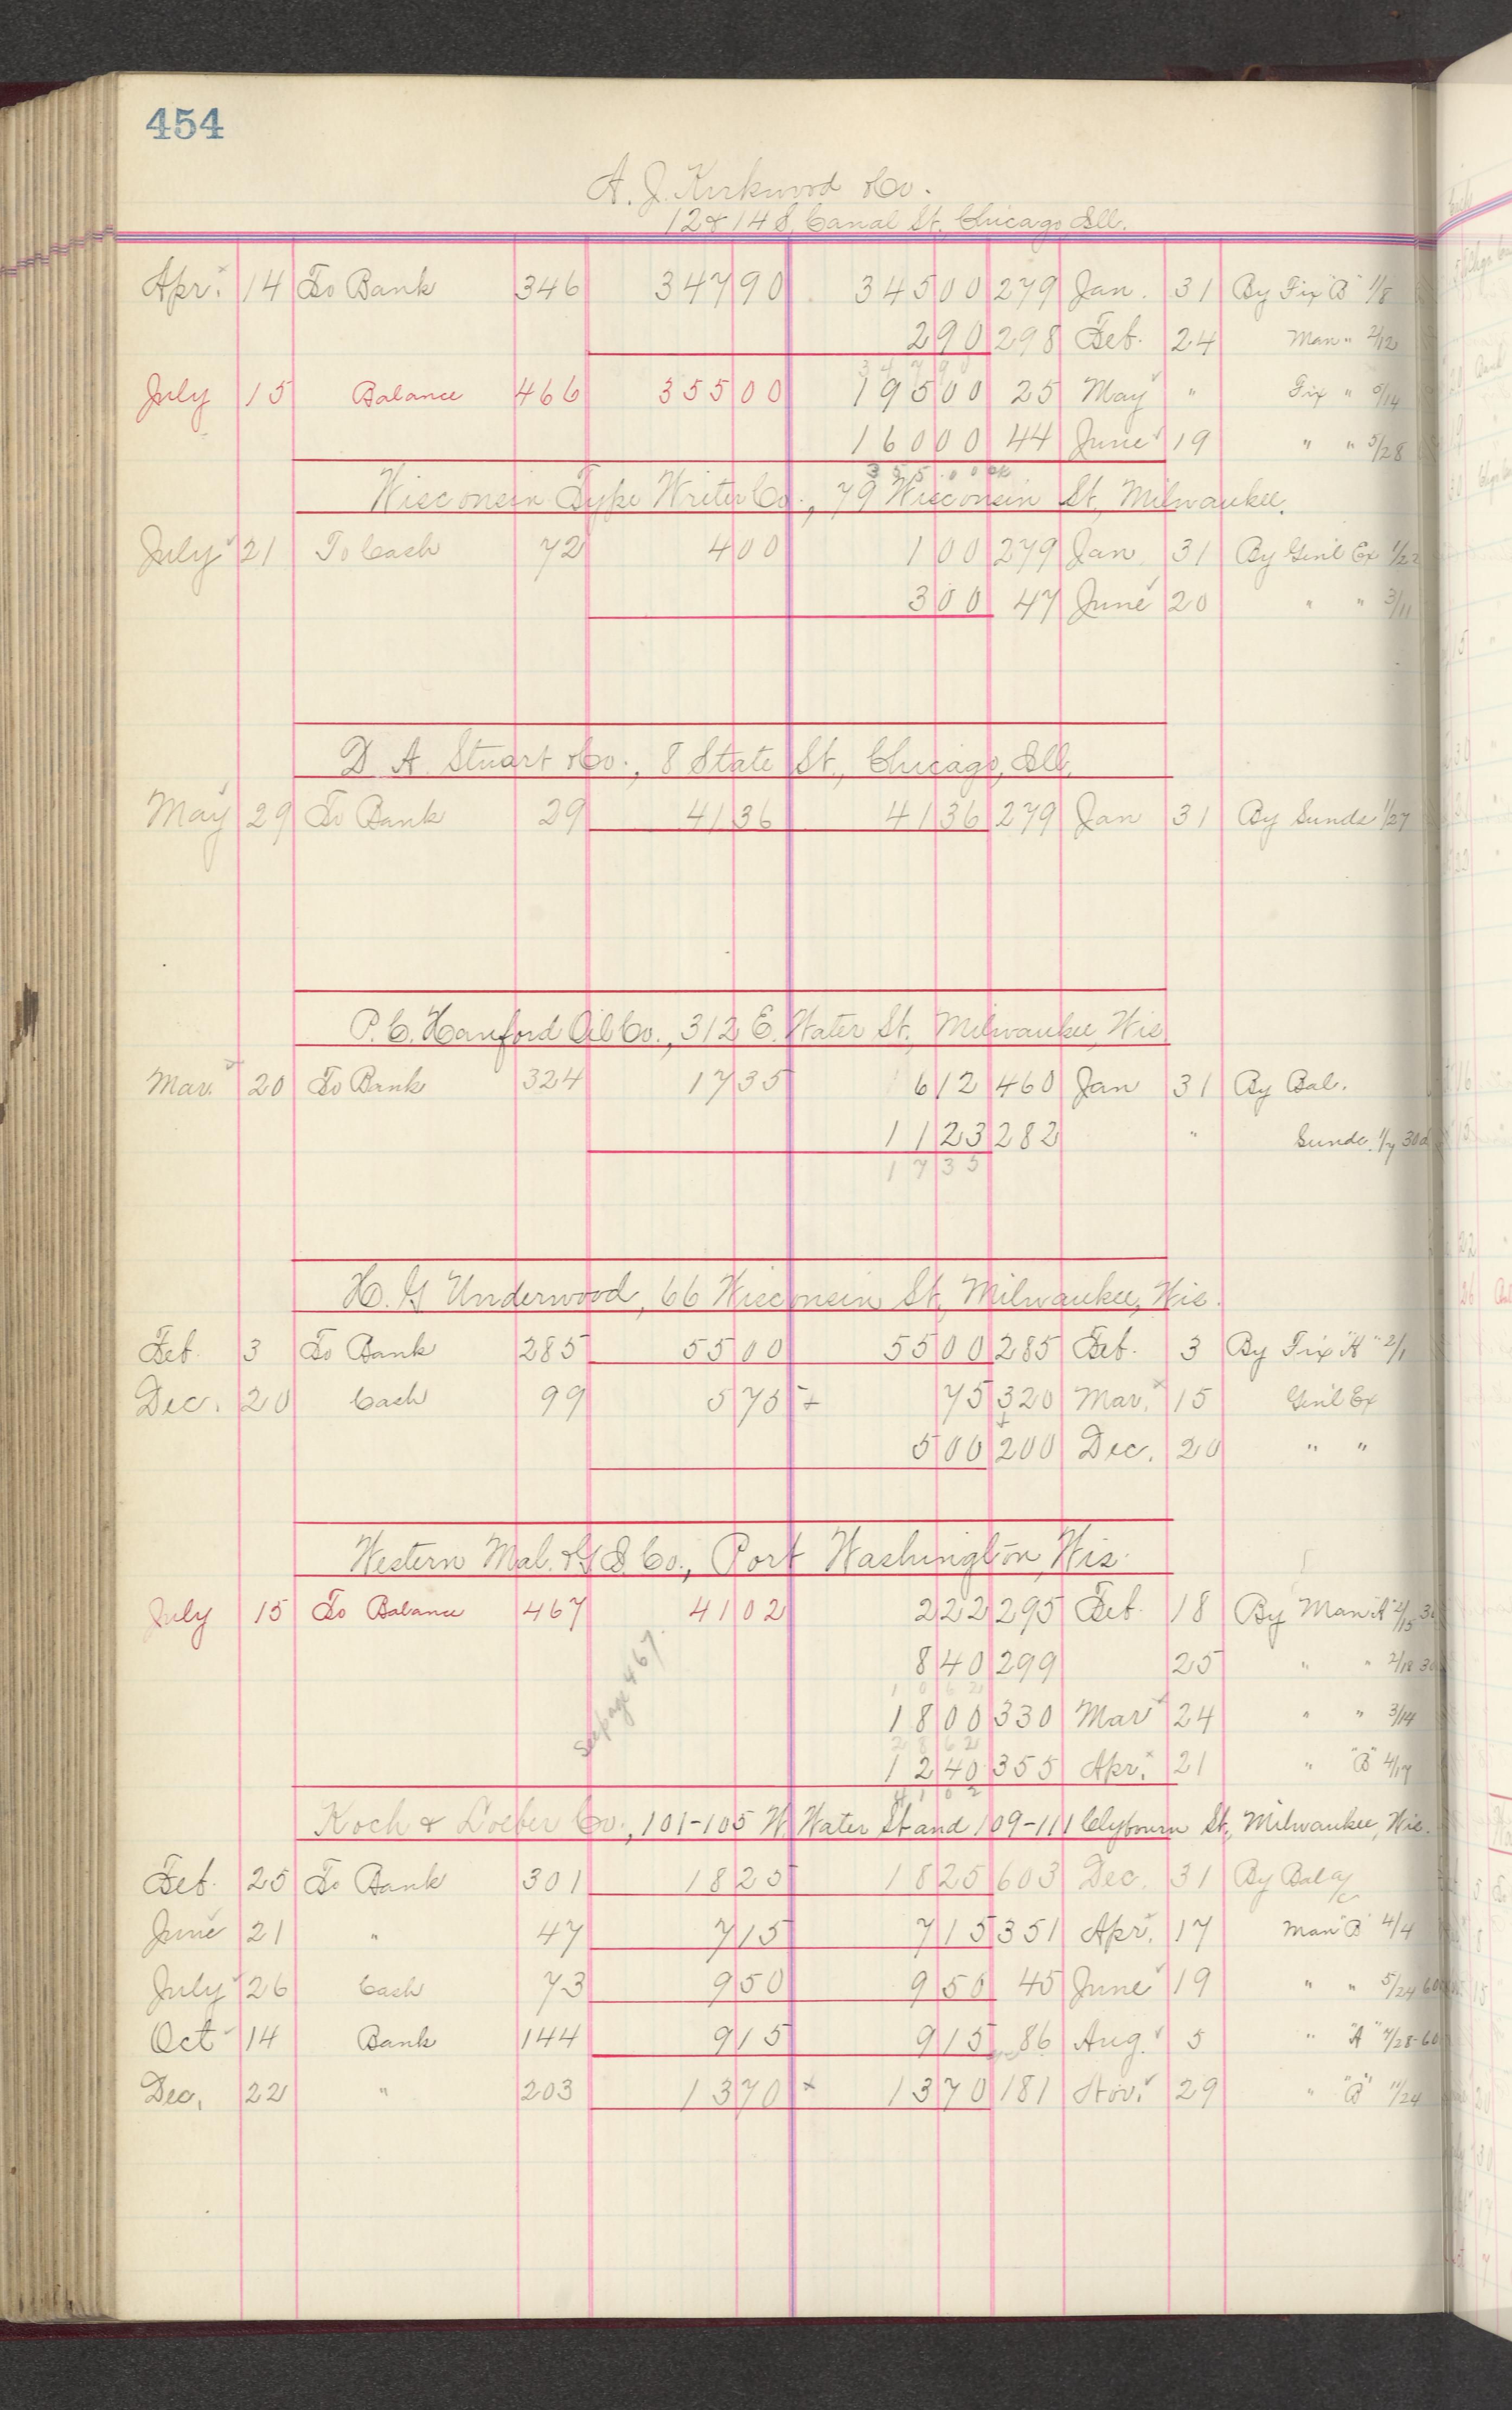 454
A. J. Kirkwood & Co.
12 & 14 S. Canal St. Chicago Ill.
Apr. 14 To Bank 346 347 90 345 00 279 Jan. 31 By Fix "B" 1/8
2 90 298 Feb. 24 Man " 2/12
3 4 7 9 0
July 15 Balance 466 355 00 195 00 25 May " Fix " 5/14
160 00 44 June 19 " " 5/28
3 5 5 . 0 0 ok
Wisconsin Type Writer Co., 79 Wisconsin St., Milwaukee.
July 21 To Cash 72 4 00 1 00 279 Jan 31 By Gen'l Ex 1/22
3 00 47 June 20 " " 3/11
D. A. Stuart & Co., 8 State St., Chicago, Ill.
May 29 To Bank 29 41 36 41 36 279 Jan 31 By Sunds 1/27
P. C. Hanford Oil Co., 312 E. Water St., Milwaukee, Wis
Mar. 20 To Bank 324 17 35 6 12 460 Jan 31 By Bal.
11 23 282 " Sunds. 1/7 30d
1 7 3 5
H. G Underwood, 66 Wisconsin St., Milwaukee, Wis.
Feb. 3 To Bank 285 55 00 55 00 285 Feb. 3 By Fix "A" 2/1
Dec. 20 Cash 99 5 75 + 75 320 Mar. 15 Gen'l Ex
5 00 200 Dec. 20 " "
Western Mal. & G S. Co., Port Washington, Wis.
July 15 To Balance 467 41 02 2 22 295 Feb. 18 By Man "A" 2/15
8 40 299 25 " " 2/18
1 0 6 2
18 00 330 Mar 24 " " 3/14
2 8 6 2
12 40 355 Apr. 21 " "B" 4/17
4 1 0 2
See page 467.
Koch & Loeber Co., 101-105 W. Water St and 109-111 Clybourn St., Milwaukee, Wis.
Feb. 25 To Bank 301 18 25 18 25 603 Dec. 31 By Bal a/c
June 21 " 47 7 15 7 15 351 Apr. 17 Man "B" 4/4
July 26 Cash 73 9 50 9 50 45 June 19 " " 5/24 60
Oct 14 Bank 144 9 15 9 15 86 Aug. 5 " "A" 7/28-60
Dec. 22 " 203 13 70 + 13 70 181 Nov. 29 " "B" 11/24